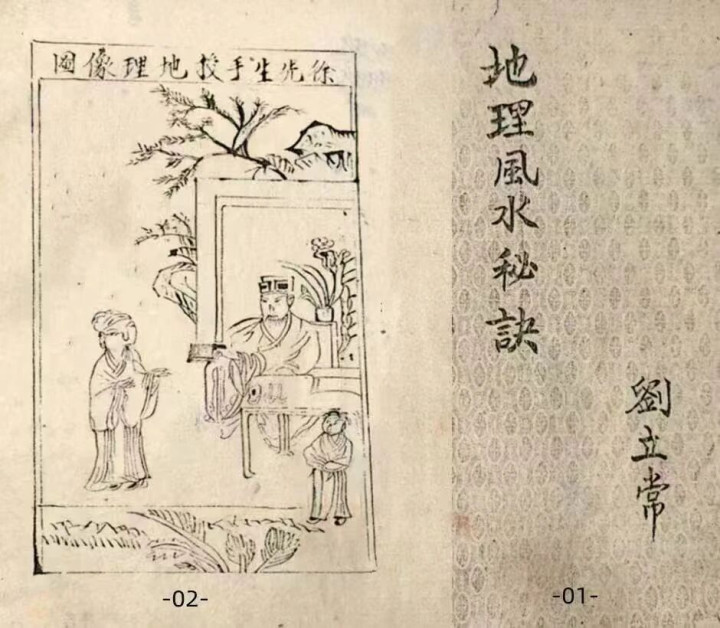 地理風水秘訣
劉立常
-01-
徐先生手授地理像图
-02-